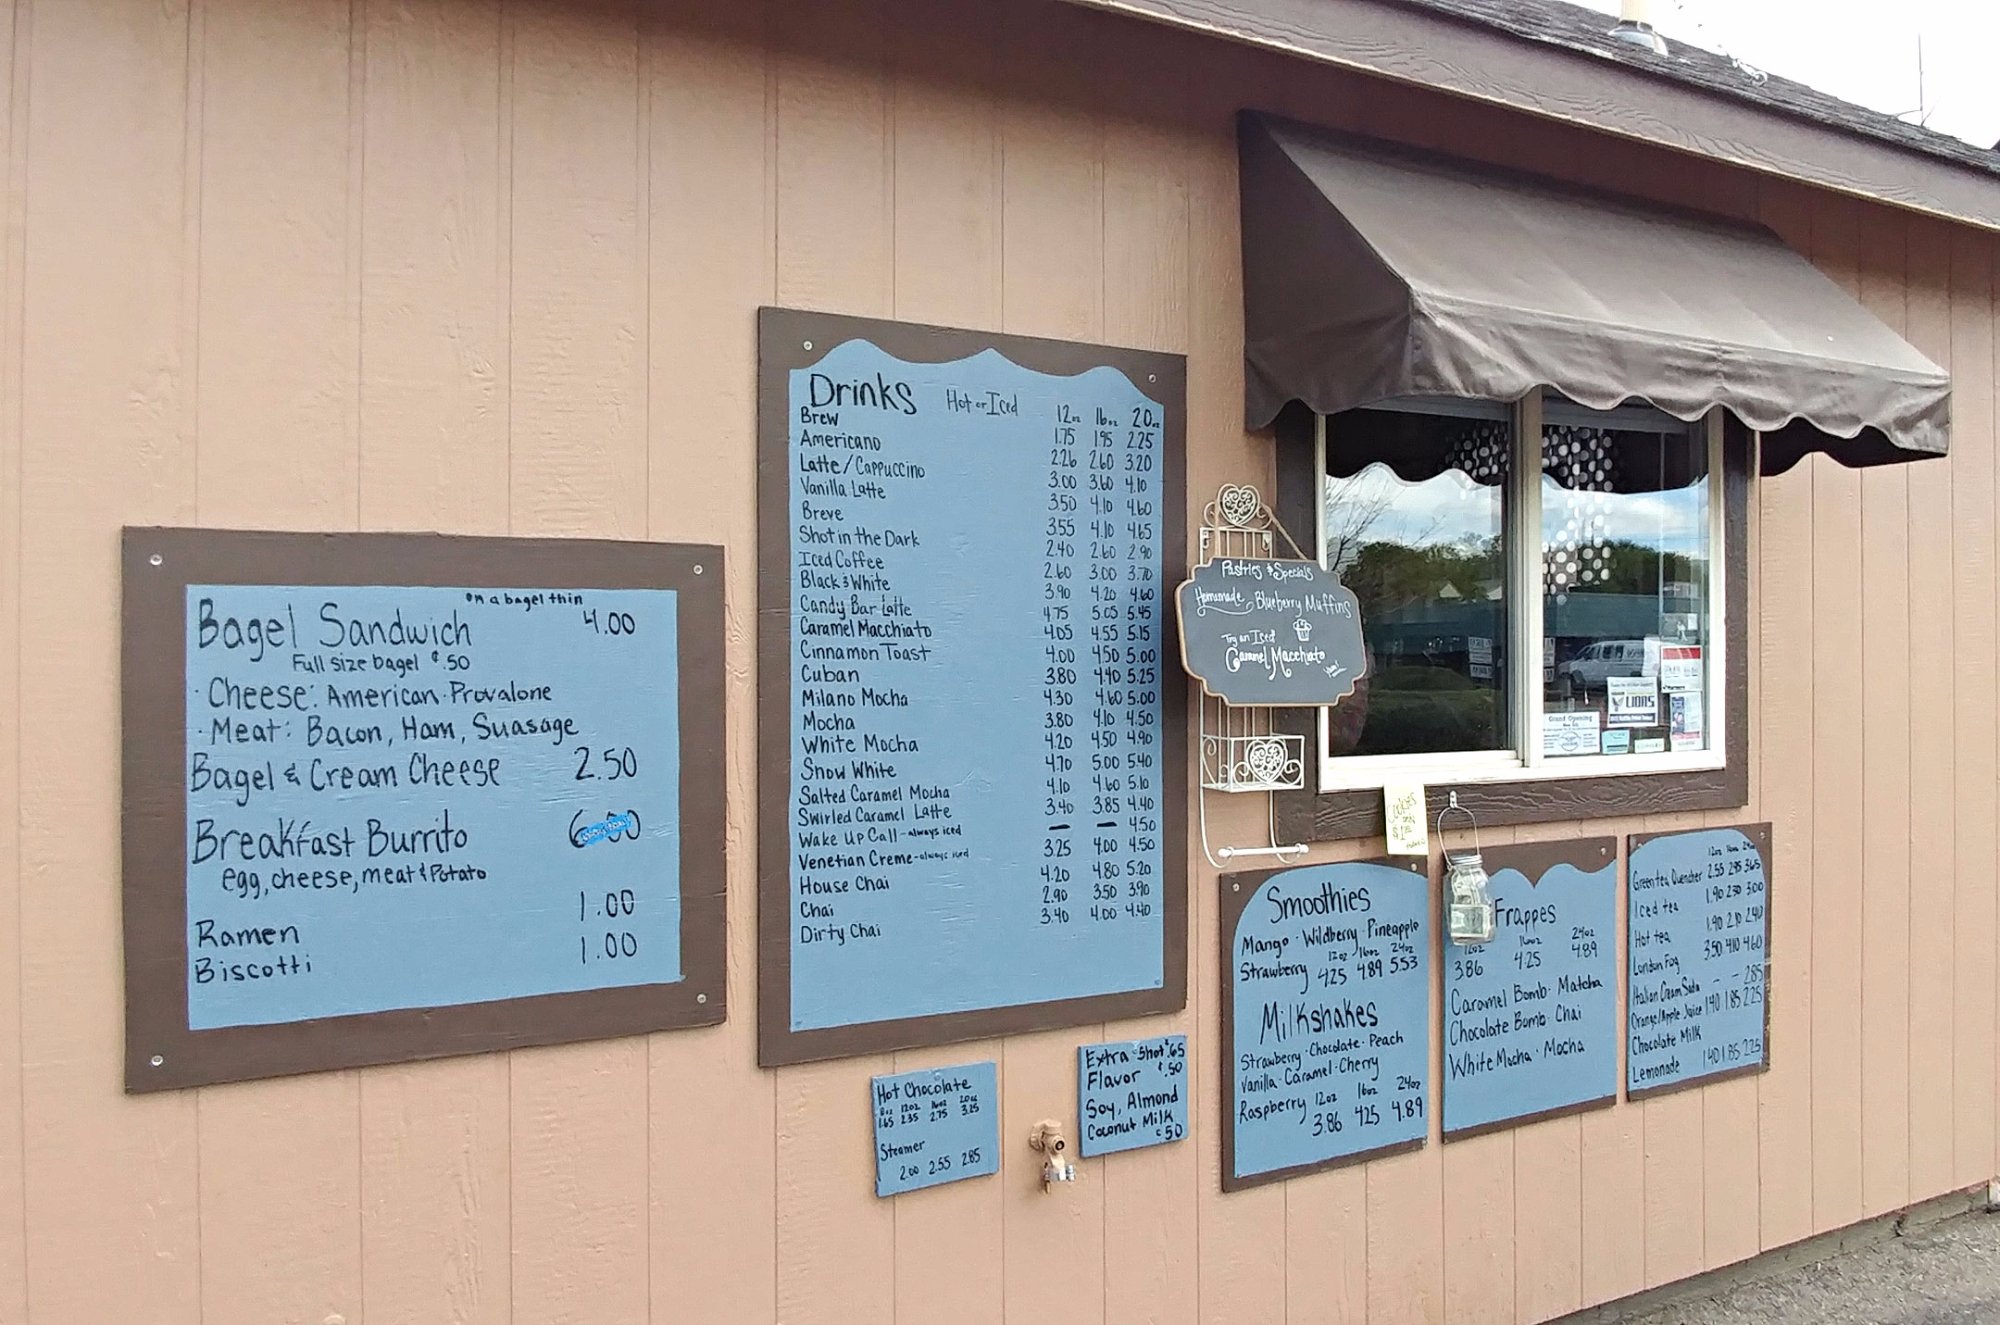 Bagel Sandwich on a bagel thin 4.00
Full size bagel $.50
· Cheese: American · Provalone
· Meat: Bacon, Ham, Suasage
Bagel & Cream Cheese 2.50
Breakfast Burrito
egg, cheese, meat & Potato
Ramen 1.00
Biscotti 1.00
Drinks Hot or Iced 12oz 16oz 20oz
Brew 1.75 1.95 2.25
Americano 2.26 2.60 3.20
Latte/Cappuccino 3.00 3.60 4.10
Vanilla Latte 3.50 4.10 4.60
Breve 3.55 4.10 4.65
Shot in the Dark 2.40 2.60 2.90
Iced Coffee 2.60 3.00 3.70
Black & White 3.90 4.20 4.60
Candy Bar Latte 4.75 5.05 5.45
Caramel Macchiato 4.05 4.55 5.15
Cinnamon Toast 4.00 4.50 5.00
Cuban 3.80 4.40 5.25
Milano Mocha 4.30 4.60 5.00
Mocha 3.80 4.10 4.50
White Mocha 4.20 4.50 4.90
Snow White 4.70 5.00 5.40
Salted Caramel Mocha 4.10 4.60 5.10
Swirled Caramel Latte 3.40 3.85 4.40
Wake Up Call - always iced — — 4.50
Venetian Creme - always iced 3.25 4.00 4.50
House Chai 4.20 4.80 5.20
Chai 2.90 3.50 3.90
Dirty Chai 3.40 4.00 4.40
Hot Chocolate
8oz 12oz 16oz 20oz
1.65 2.35 2.75 3.25
Steamer
2.00 2.55 2.85
Extra Shot $.65
Flavor $.50
Soy, Almond
Coconut Milk
$.50
Pastries & Specials
Homemade Blueberry Muffins
Try an Iced
Caramel Macchiato
LIONS
Grand Opening
Cookies
Smoothies
Mango · Wildberry · Pineapple
12oz 16oz 24oz
Strawberry 4.25 4.89 5.53
Milkshakes
Strawberry · Chocolate · Peach
Vanilla · Caramel · Cherry
Raspberry 12oz 16oz 24oz
3.86 4.25 4.89
Frappes
12oz 16oz 24oz
3.86 4.25 4.89
Caramel Bomb · Matcha
Chocolate Bomb · Chai
White Mocha · Mocha
12oz 16oz 24oz
Green tea Quencher 2.55 2.95 3.65
Iced tea 1.90 2.30 3.00
Hot tea 1.90 2.10 2.40
London Fog 3.50 4.10 4.60
Italian Cream Soda — — 2.85
Orange/Apple Juice 1.40 1.85 2.25
Chocolate Milk
Lemonade 1.40 1.85 2.25